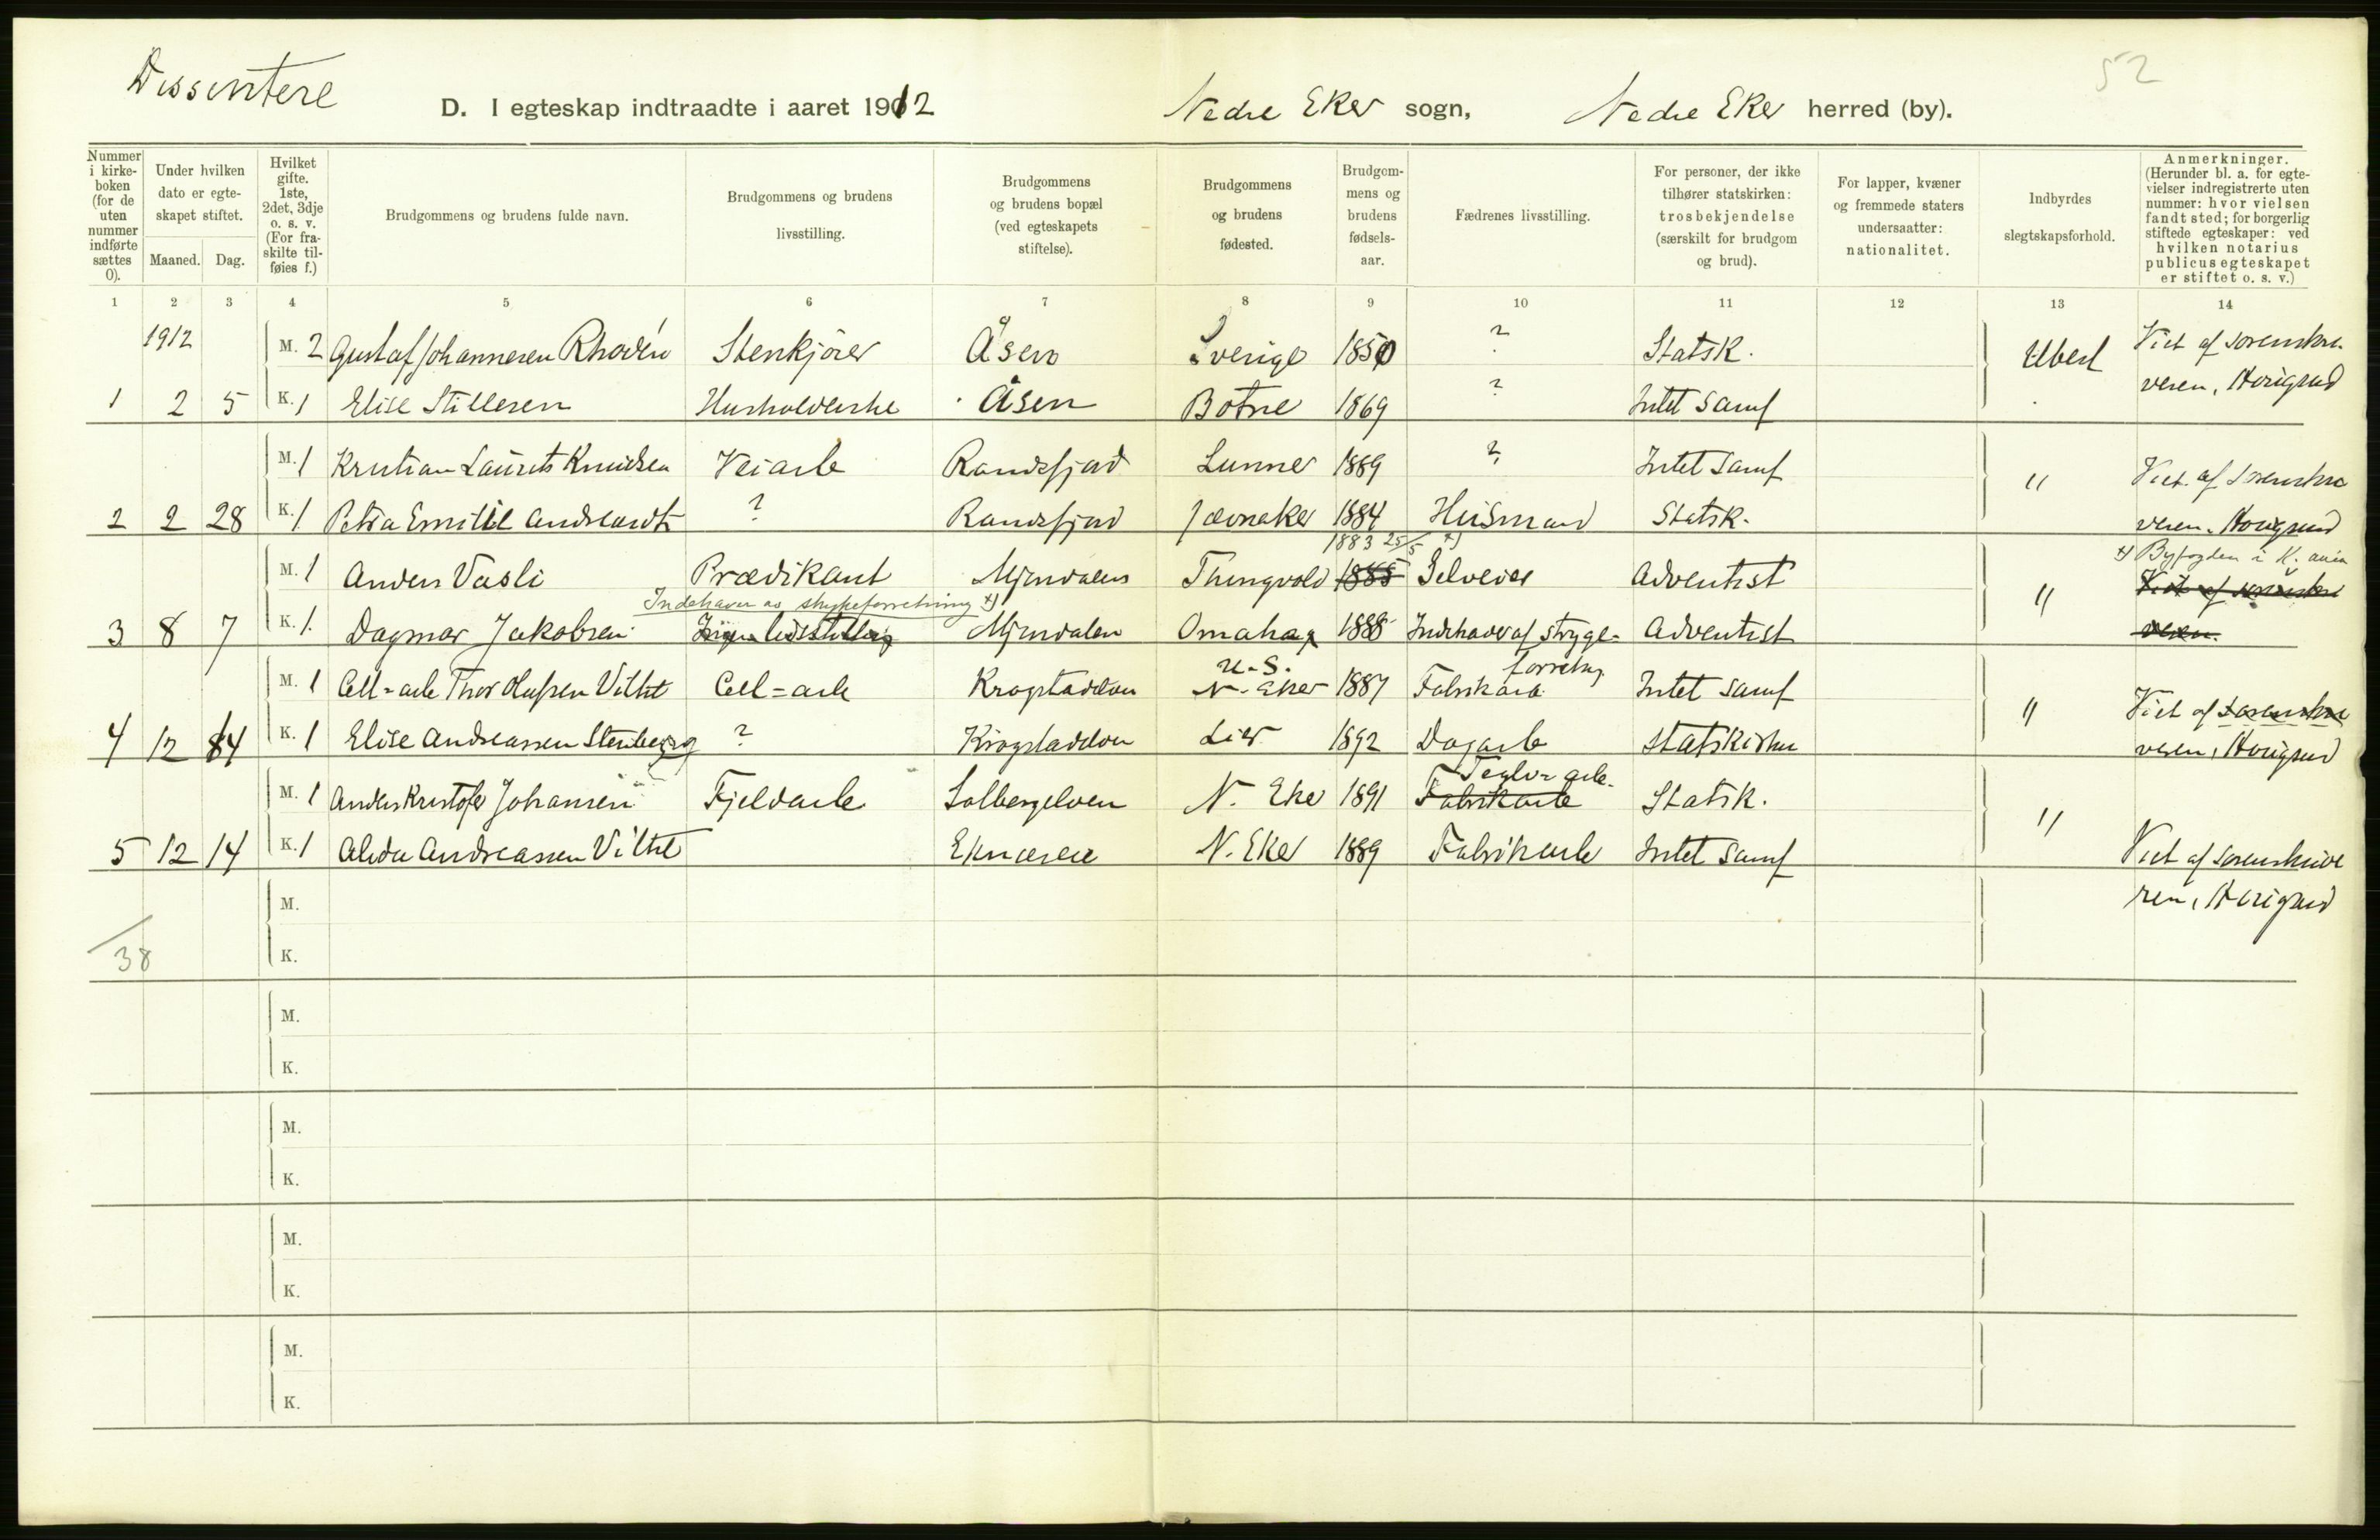 Dissentere
52
D. I egteskap indtraadte i aaret 1912 Nedre Eker sogn, Nedre Eker herred (by).
Nummer i kirke-boken (for de uten nummer indførte sættes 0).
Under hvilken dato er egte-skapet stiftet.
Maaned. Dag.
Hvilket gifte. 1ste, 2det, 3dje o. s. v. (For fra-skilte til-føies f.)
Brudgommens og brudens fulde navn.
Brudgommens og brudens livsstilling.
Brudgommens og brudens bopæl (ved egteskapets stiftelse).
Brudgommens og brudens fødested.
Brudgom-mens og brudens fødsels-aar.
Fædrenes livsstilling.
For personer, der ikke tilhører statskirken: trosbekjendelse (særskilt for brudgom og brud).
For lapper, kvæner og fremmede staters undersaatter: nationalitet.
Indbyrdes slegtskapsforhold.
Anmerkninger. (Herunder bl. a. for egte-vielser indregistrerte uten nummer: hvor vielsen fandt sted; for borgerlig stiftede egteskaper: ved hvilken notarius publicus egteskapet er stiftet o. s. v.)
1 2 3 4 5 6 7 8 9 10 11 12 13 14
1912 M. 2 Gustaf Johannesen Rhodén Stenkjører Åsen Sverige 1850 ? Statsk. Ubesl Viet af sorenskri
1 2 5 K. 1 Elise Stillesen Husholderske Åsen Botne 1869 ? Intet samf veren, Horigrud
M. 1 Kristian Laurits Knudsen Veiarb Randsfjord Lunner 1889 ? Intet samf " Viet af sorenskri
2 2 28 K. 1 Petra Emilie Randsfjord Jævnaker 1884 Husmand Statsk. veren, Horigrud
1883 25/5 x) x) Byfogden i K. ania
M. 1 Anders Vasli Prædikant Mjøndalen Thingvold 1885 Selveier Adventist " Viet af sorenskri
Indehaver av strykeforretning x)
3 8 7 K. 1. Dagmar Jakobsen Ingen livsstilling Mjøndalen Omaha 1888 Indehaver af stryge- Adventist veren.
U.S. forretng.
M. 1 Cell=arb Thor Olufsen Vilhet Cell=arb Krogstadelven N. Eker 1887 Fabrikarb. Intet samf " Viet af sorenskri
4 12 84 K. 1 Elise Andreassen Stenberg ? Krogstadelven Lier 1892 Dagarb Statskirken veren, Horigrud
Teglv=arb.
M. 1 Anders Kristofer Johansen Fjeldarb Solbergelven N. Eker 1891 Fabrikarb Statsk. "
5 12 14 K. 1 Alida Andreassen Vilhet N. Eker 1889 Fabrikarb Intet samf Viet af sorenskrive
M. ren, Horigrud
38 K.
M.
K.
M.
K.
M.
K.
M.
K.